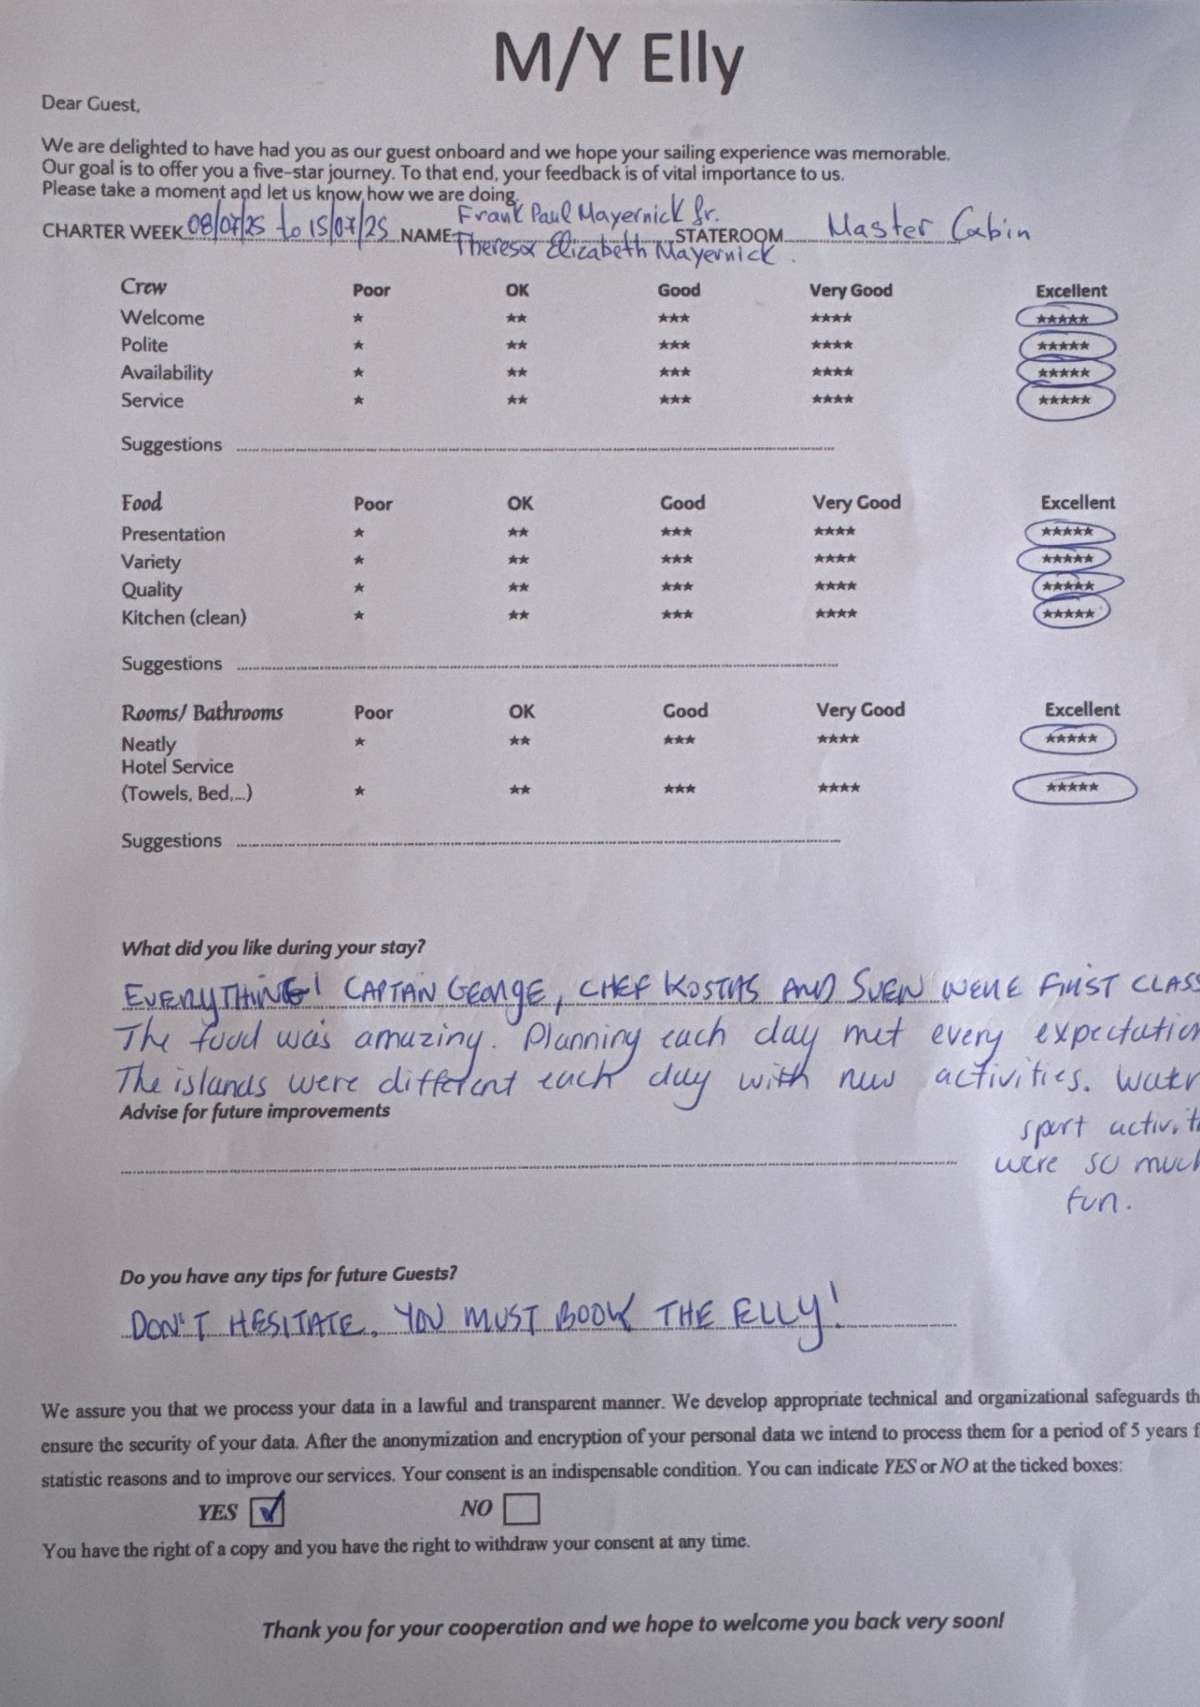 M/Y Elly
Dear Guest,
We are delighted to have had you as our guest onboard and we hope your sailing experience was memorable.
Our goal is to offer you a five-star journey. To that end, your feedback is of vital importance to us.
Please take a moment and let us know how we are doing.
Frank Paul Mayernick Jr.
CHARTER WEEK 08/07/25 to 15/07/25 NAME Theresa Elizabeth Mayernick. STATEROOM Master Cabin
Crew Poor OK Good Very Good Excellent
Welcome ★ ★★ ★★★ ★★★★ ★★★★★
Polite ★ ★★ ★★★ ★★★★ ★★★★★
Availability ★ ★★ ★★★ ★★★★ ★★★★★
Service ★ ★★ ★★★ ★★★★ ★★★★★
Suggestions
Food Poor OK Good Very Good Excellent
Presentation ★ ★★ ★★★ ★★★★ ★★★★★
Variety ★ ★★ ★★★ ★★★★ ★★★★★
Quality ★ ★★ ★★★ ★★★★ ★★★★★
Kitchen (clean) ★ ★★ ★★★ ★★★★ ★★★★★
Suggestions
Rooms/ Bathrooms Poor OK Good Very Good Excellent
Neatly ★ ★★ ★★★ ★★★★ ★★★★★
Hotel Service
(Towels, Bed,...) ★ ★★ ★★★ ★★★★ ★★★★★
Suggestions
What did you like during your stay?
EVERYTHING! CAPTAN GEORGE, CHEF KOSTAS AND SVEN WERE FIRST CLASS
The food was amazing. Planning each day met every expectation
The islands were different each day with new activities. Water
Advise for future improvements
sport activit
were so much
fun.
Do you have any tips for future Guests?
DON'T HESITATE, YOU MUST BOOK THE ELLY!
We assure you that we process your data in a lawful and transparent manner. We develop appropriate technical and organizational safeguards th
ensure the security of your data. After the anonymization and encryption of your personal data we intend to process them for a period of 5 years f
statistic reasons and to improve our services. Your consent is an indispensable condition. You can indicate YES or NO at the ticked boxes:
YES NO
You have the right of a copy and you have the right to withdraw your consent at any time.
Thank you for your cooperation and we hope to welcome you back very soon!